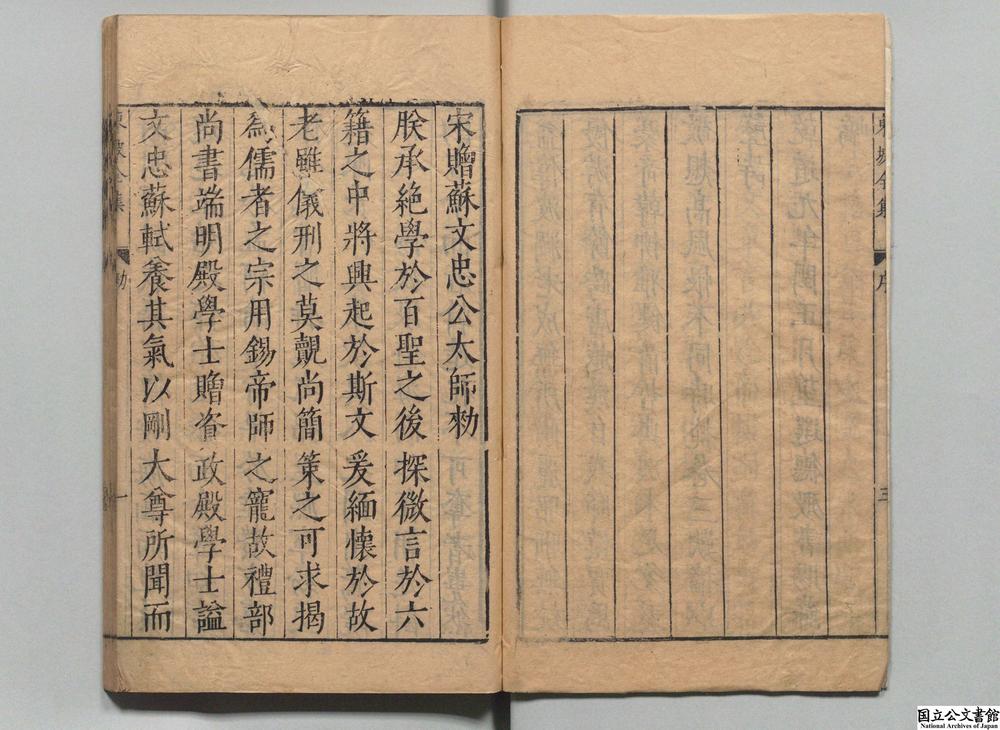 東坡全集
序
三
宋贈蘇文忠公太師勑
朕承絶學於百聖之後探微言於六
籍之中將興起於斯文爰緬懷於故
老雖儀刑之莫覿尚簡策之可求揭
爲儒者之宗用錫帝師之寵故禮部
尚書端明殿學士贈資政殿學士謚
文忠蘇軾養其氣以剛大尊所聞而
東坡全集
勑
一
国立公文書館
National Archives of Japan